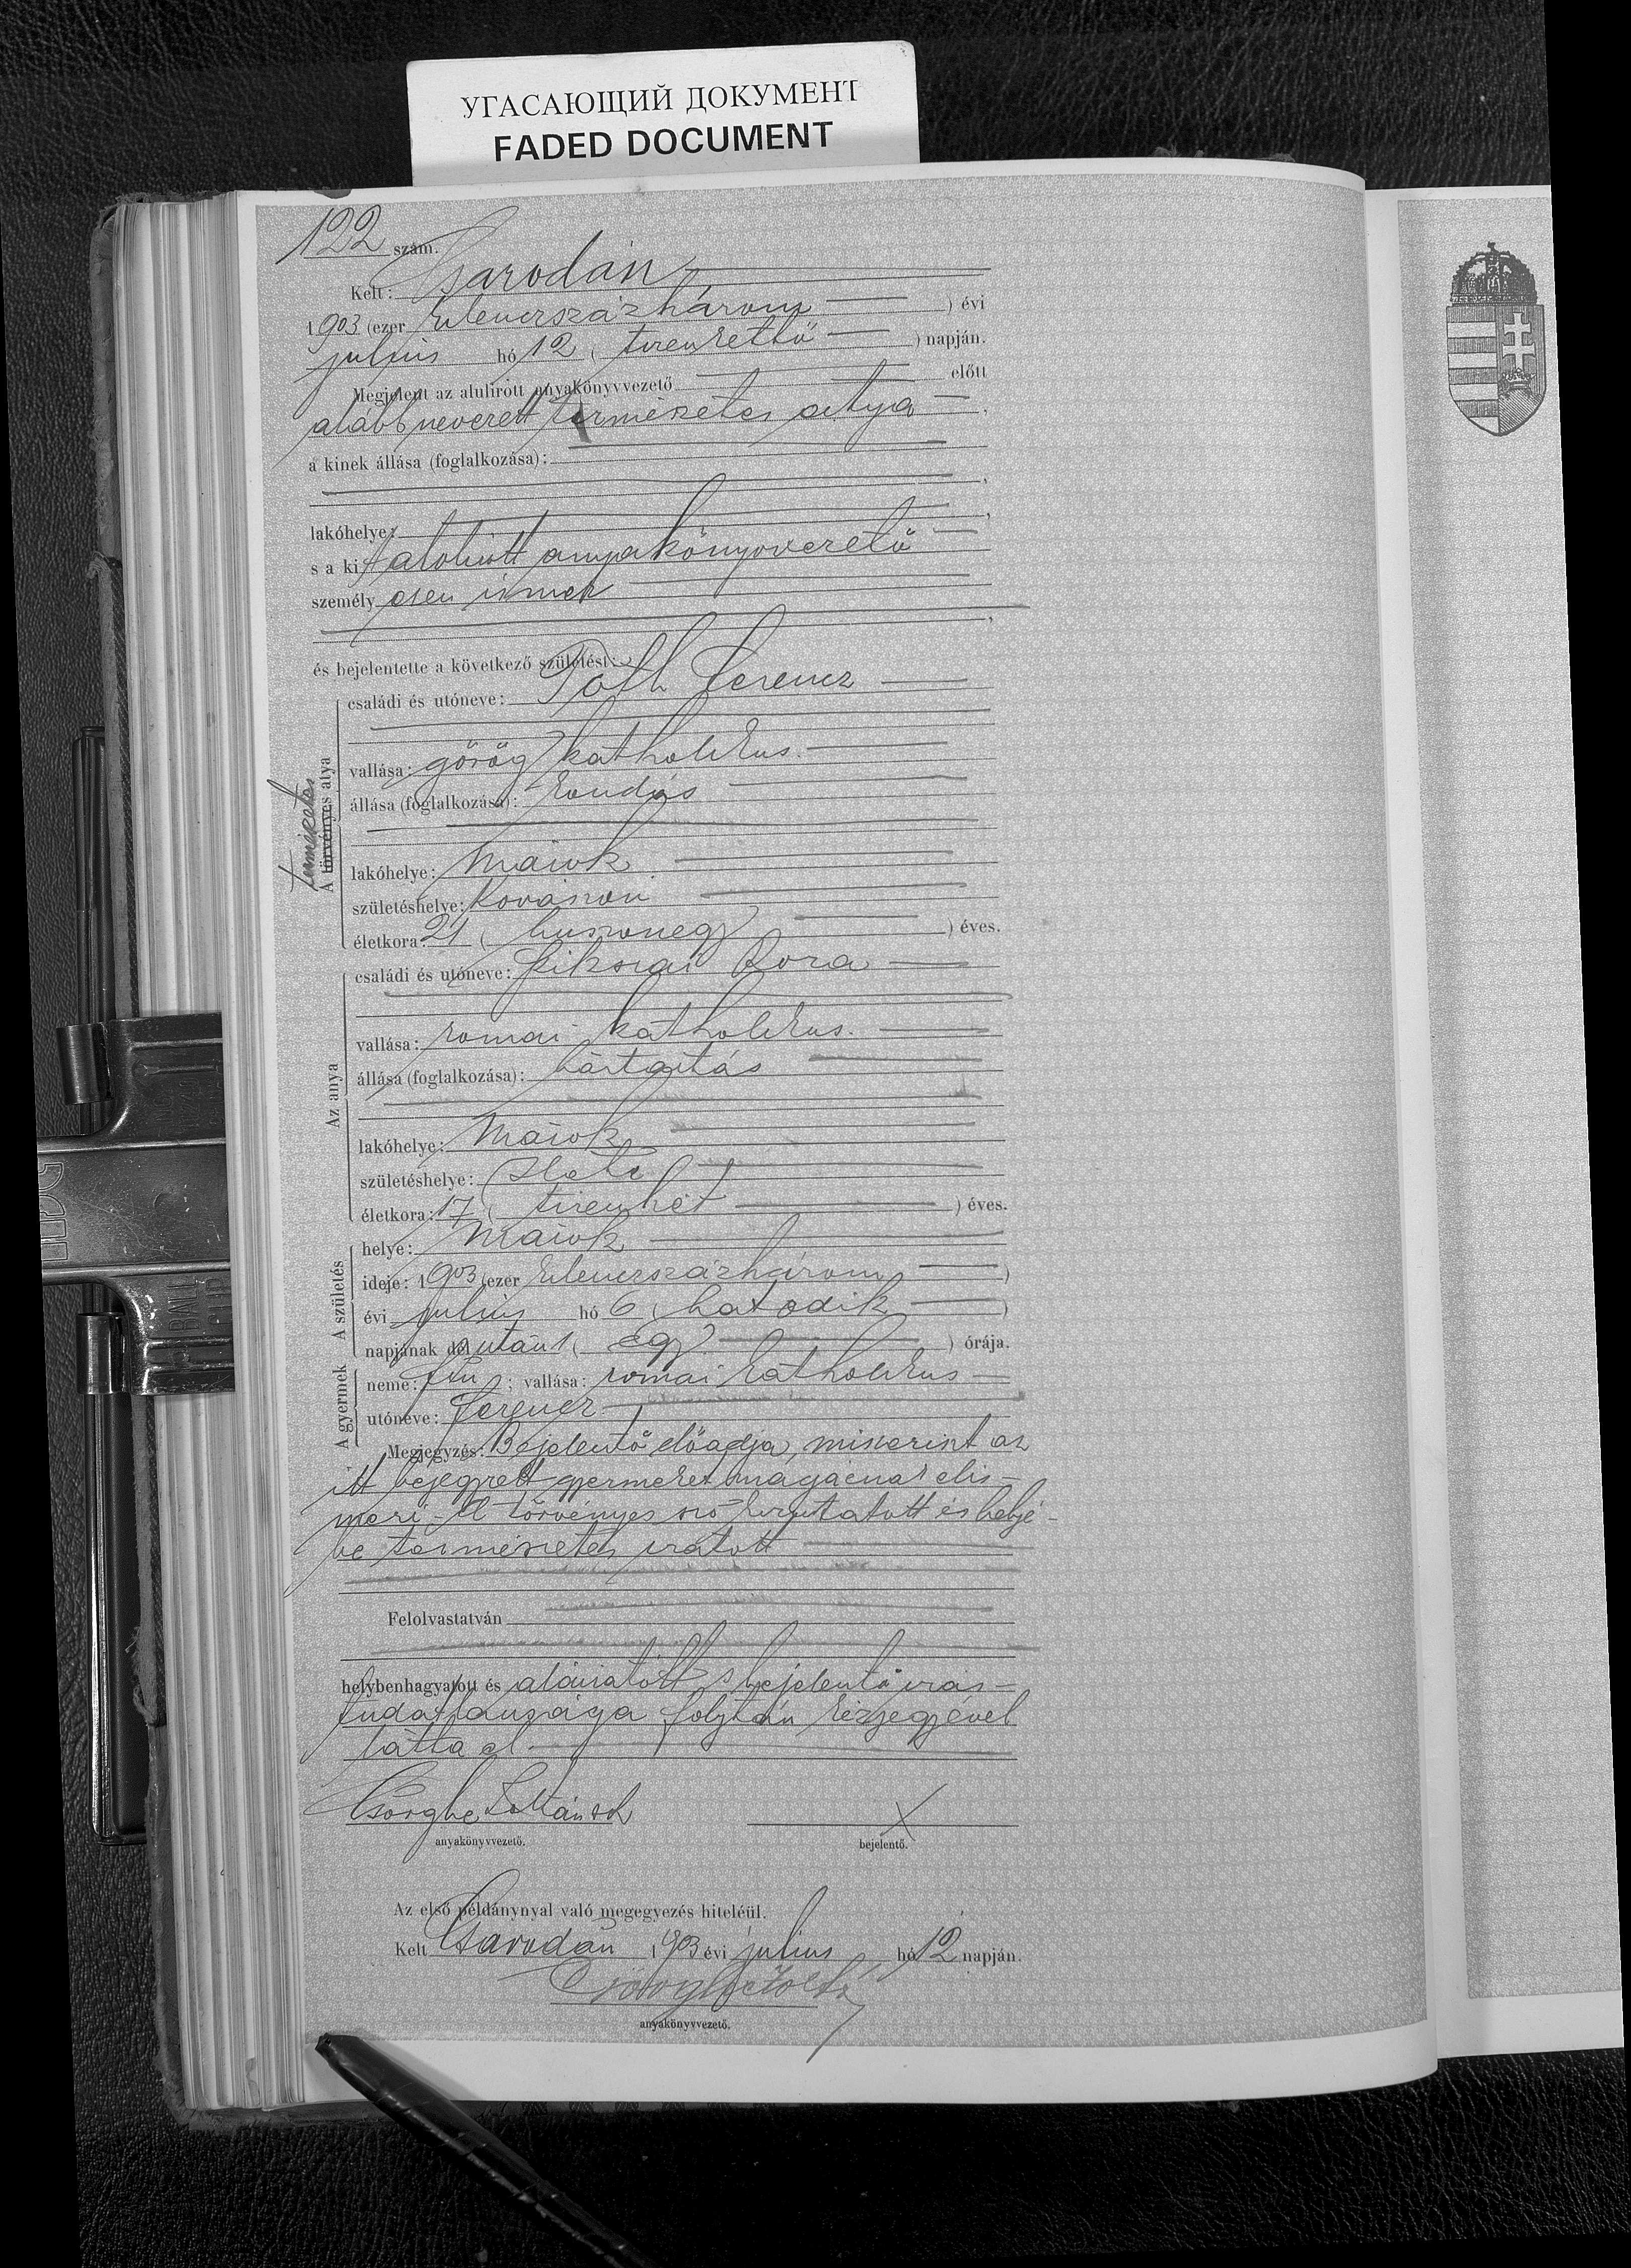 УГАСАЮЩИЙ ДОКУМЕНТ
FADED DOCUMENT
122 szám.
Kelt: Csarodán
1903 (ezer kilenczszázhárom ) évi
julius hó 12 ( tizenkettő ) napján.
Megjelent az alulirott anyakönyvvezető előtt
alább nevezett természetes atya
a kinek állása (foglalkozása):
lakóhelye:
s a kit alolirott anyakönyvvezető
személyesen ismer
és bejelentette a következő születést:
A törvényes atya
természetes
családi és utóneve: Tóth Ferencz
vallása: görög katholikus.
állása (foglalkozása): kondás
lakóhelye: Márok
születéshelye:
életkora: 21 ( huszonegy ) éves.
Az anya
családi és utóneve: Róza
vallása: római katholikus.
állása (foglalkozása): háztartás
lakóhelye: Márok
születéshelye:
életkora: 17 ( tizenhét ) éves.
A születés
helye: Márok
ideje: 1903 (ezer kilenczszázhárom )
évi julius hó 6 ( hatodik )
napjának délután 1 ( egy ) órája.
A gyermek
neme: fiu ; vallása: római katholikus
utóneve: Ferencz
Megjegyzés: Bejelentő előadja, miszerint az
itt bejegyzett gyermeket magáénak elis-
meri - A törvényes szó töröltetett és helyé-
be természetes iratott
Felolvastatván
helybenhagyatott és aláiratott s bejelentő irás-
tudatlansága folytán kézjegyével
látta el.
Csörghe Zoltán
anyakönyvvezető. bejelentő.
X
Az első példánynyal való megegyezés hiteléül.
Kelt Csarodán 1903 évi julius hó 12 napján.
Csörghe Zoltán
anyakönyvvezető.